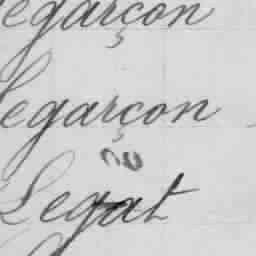 Legarçon
Legarçon
Legat